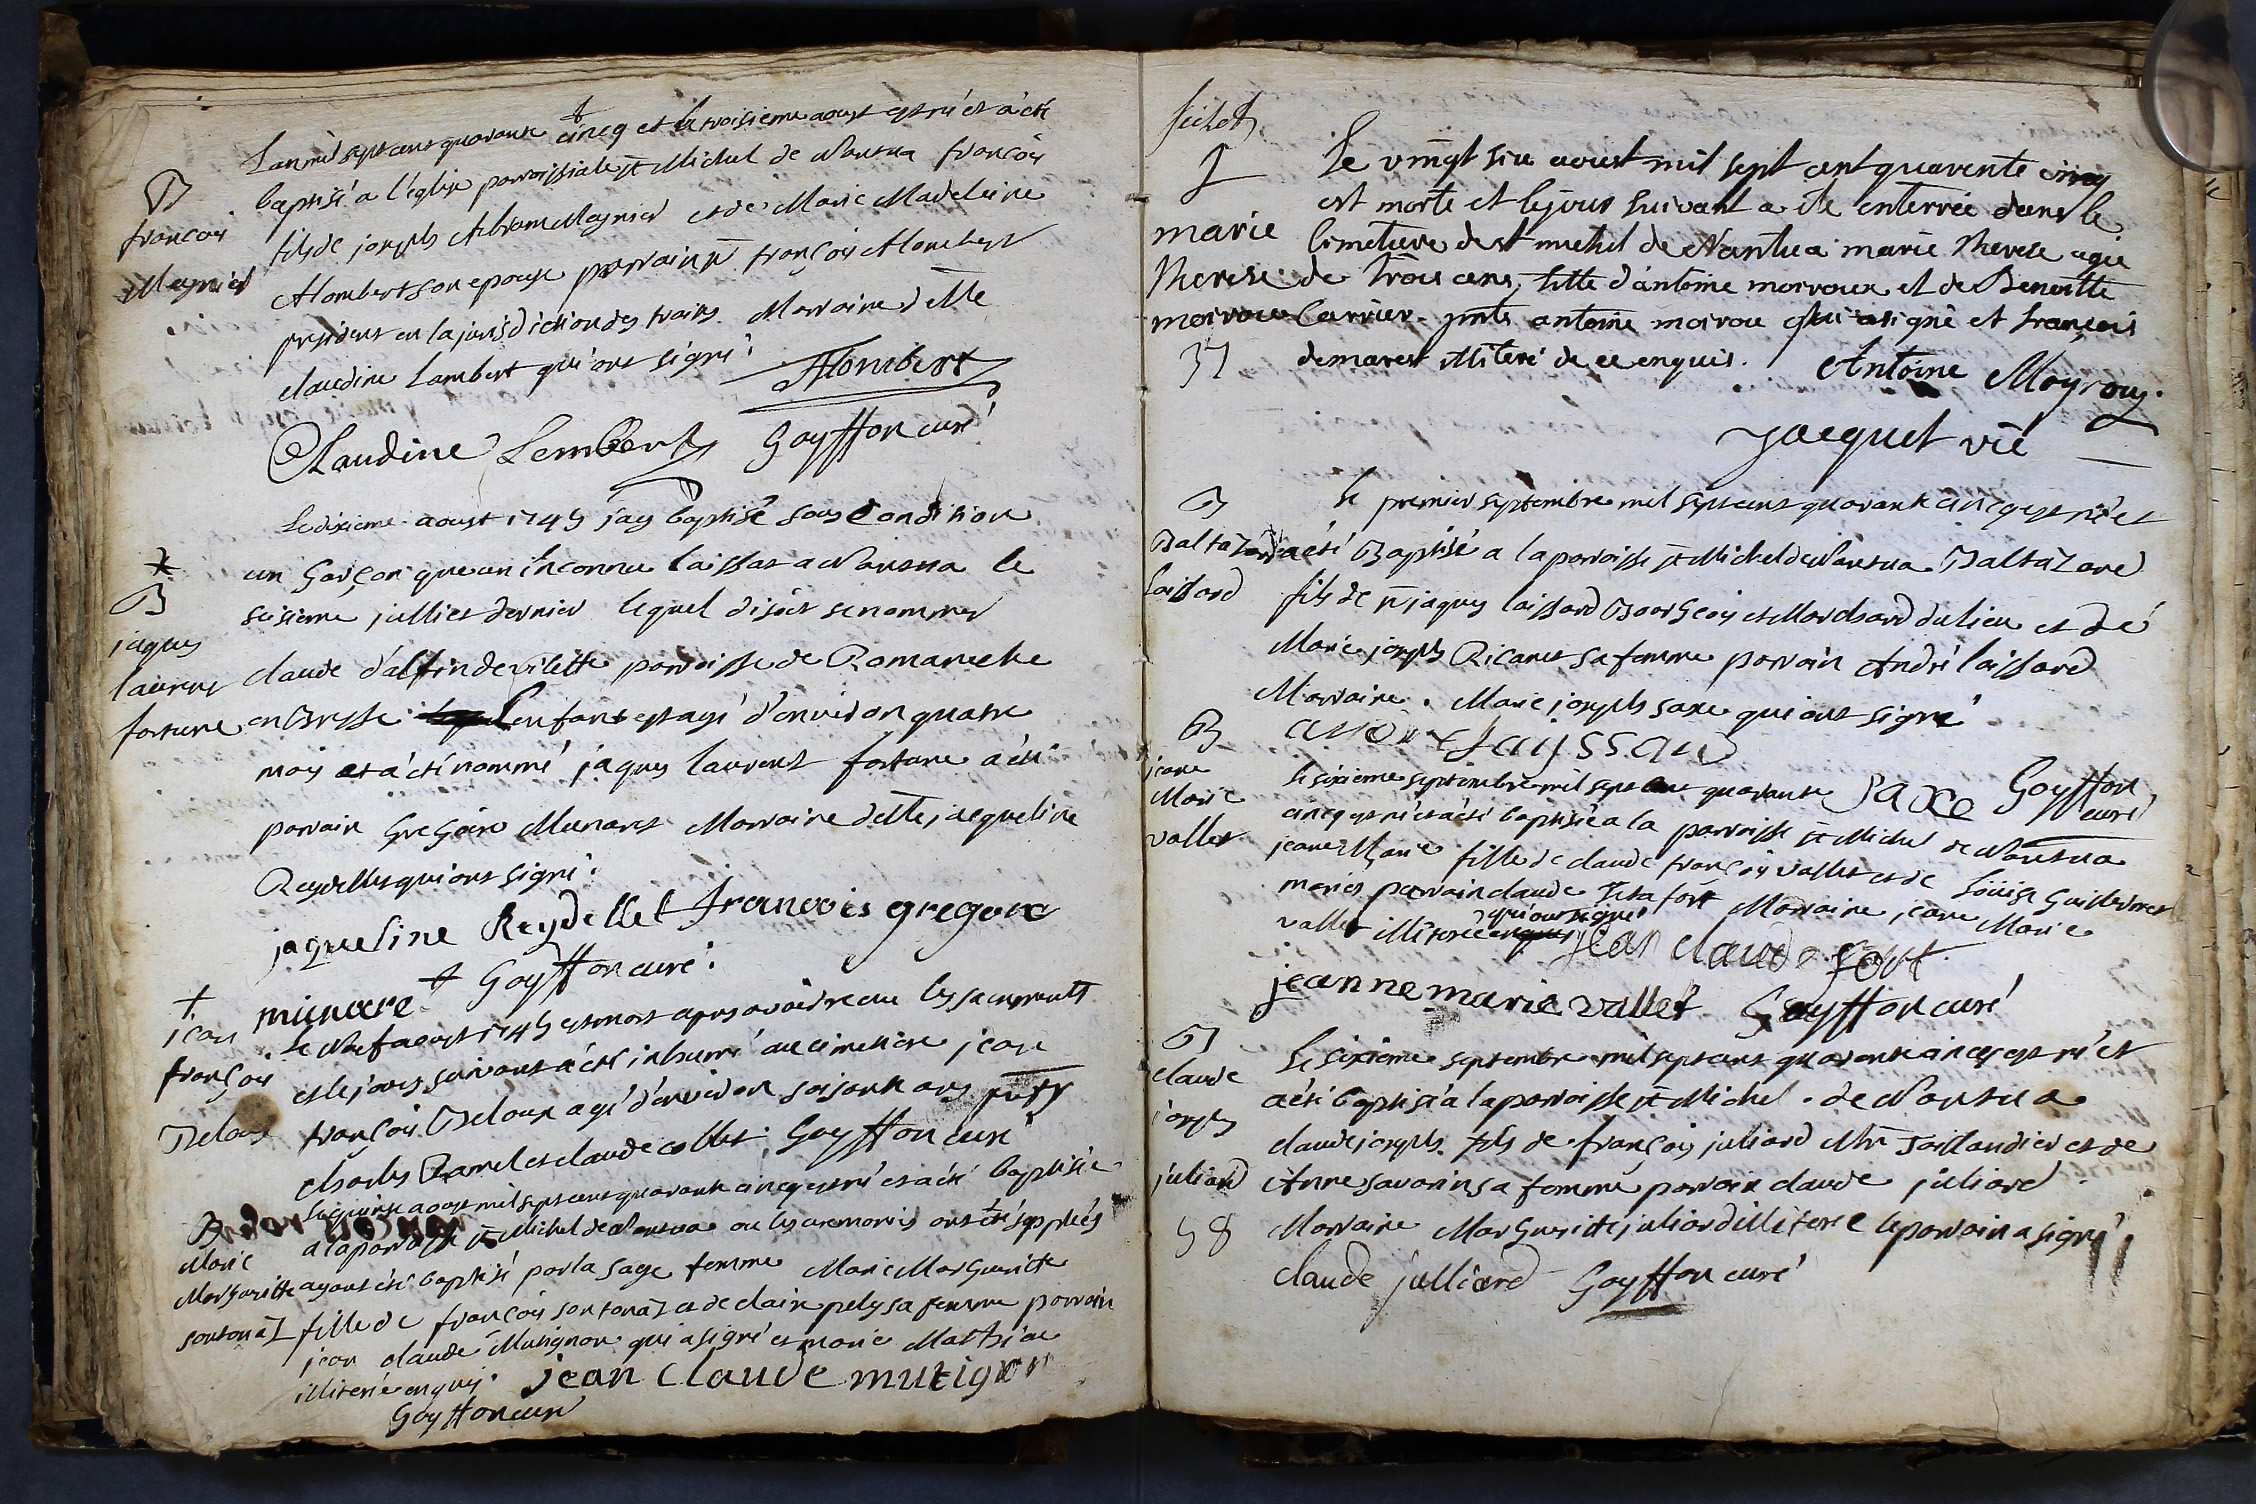 L'an mil sept cent quarante cinq et le troisieme aoust est né et a été
B baptisé a l'église parroissiale st Michel de Nantua françois
françois fils de joseph Abram Maynier et de Marie Madeleine
Maynier Alombert son epouse parrain sr françois Alombert
president en la jurisdiction des traites Marraine dlle
claudine Lambert qui ont signé.
Alombert
Claudine Lembert Goyffon curé
Le dixieme aoust 1745 j'ay baptisé sous condition
un garçon que un inconnu laissat a Nantua le
B seisieme julliet dernier lequel disoit se nommer
jaques claude parroisse de Romaneche
laurent en Bresse l'enfant est agé d'environ quatre
fortune mois et a été nommé jaques laurent fortune a été
parrain Gregoire Munaret Marraine dlle jacqueline
Reydellet qui ont signé.
jaqueline Reydellet francois gregore
minare Goyffon curé.
† Le Neuf aoust 1745 est mort apres avoir receu les sacrements
jean et le jour suivant a été inhumé au cimetiere jean
françois françois Deloux agé d'environ soisante ans
Deloux charles Ramel et claude collet. Goyffon curé
Le quinse aoust mil sept cent quarante cinq est né et a été baptisée
B a la parroisse st Michel de Nantua ou les ceremonies ont été suppléés
Marie ayant été baptisé par la sage femme Marie Margueritte
Margueritte fille de françois sontonaz et de claire pely sa femme parrain
sontonaz jean claude Mutignon qui a signé et marie
illiterée enquis. jean claude mutignon
Goyffon curé
Le vingt six aoust mil sept cent quarente cinq
est morte et le jour suivant a été enterrée dans le
marie cimetiere de st michel de Nantua marie therese agée
therese de trois ans, fille d'antoine moiroux et de Benoitte
moiroux Carrier. pnts antoine moirou qui a signé et françois
37 demarest illiteré de ce enquis. Antoine Moyroux.
Jacquet vic
B Le premier septembre mil sept cent quarante cinq est né et
Baltazard a été Baptisé a la parroisse st Michel de Nantua Baltazard
laissard fils de sr jaques laissard Bourgeois et Marchand du lieu et de
Marie joseph Ricanet sa femme parrain André laissard
Marraine Marie joseph saxe qui ont signé
Laijssard
Saxe Goyffon curé
B Le sixieme septembre mil sept cent quarante
jeane cinq est né et a été baptisée a la parroisse st Michel de Nantua
Marie jeane Marie fille de claude françois vallet et de Loüise
vallet mariés parrain claude fort Marraine jeane Marie
vallet qui ont signé
jean claude fort
jeanne marie vallet Goyffon curé
B Le sixieme septembre mil sept cent quarante cinq est né et
claude a été baptisé a la parroisse st Michel de Nantua
joseph claude joseph fils de françois juliard Mtre Taillandier et de
juliard Anne savarin sa femme parrain claude juliard
58 Marraine Margueritte juliard illiteré le parrain a signé
claude julliard Goyffon curé